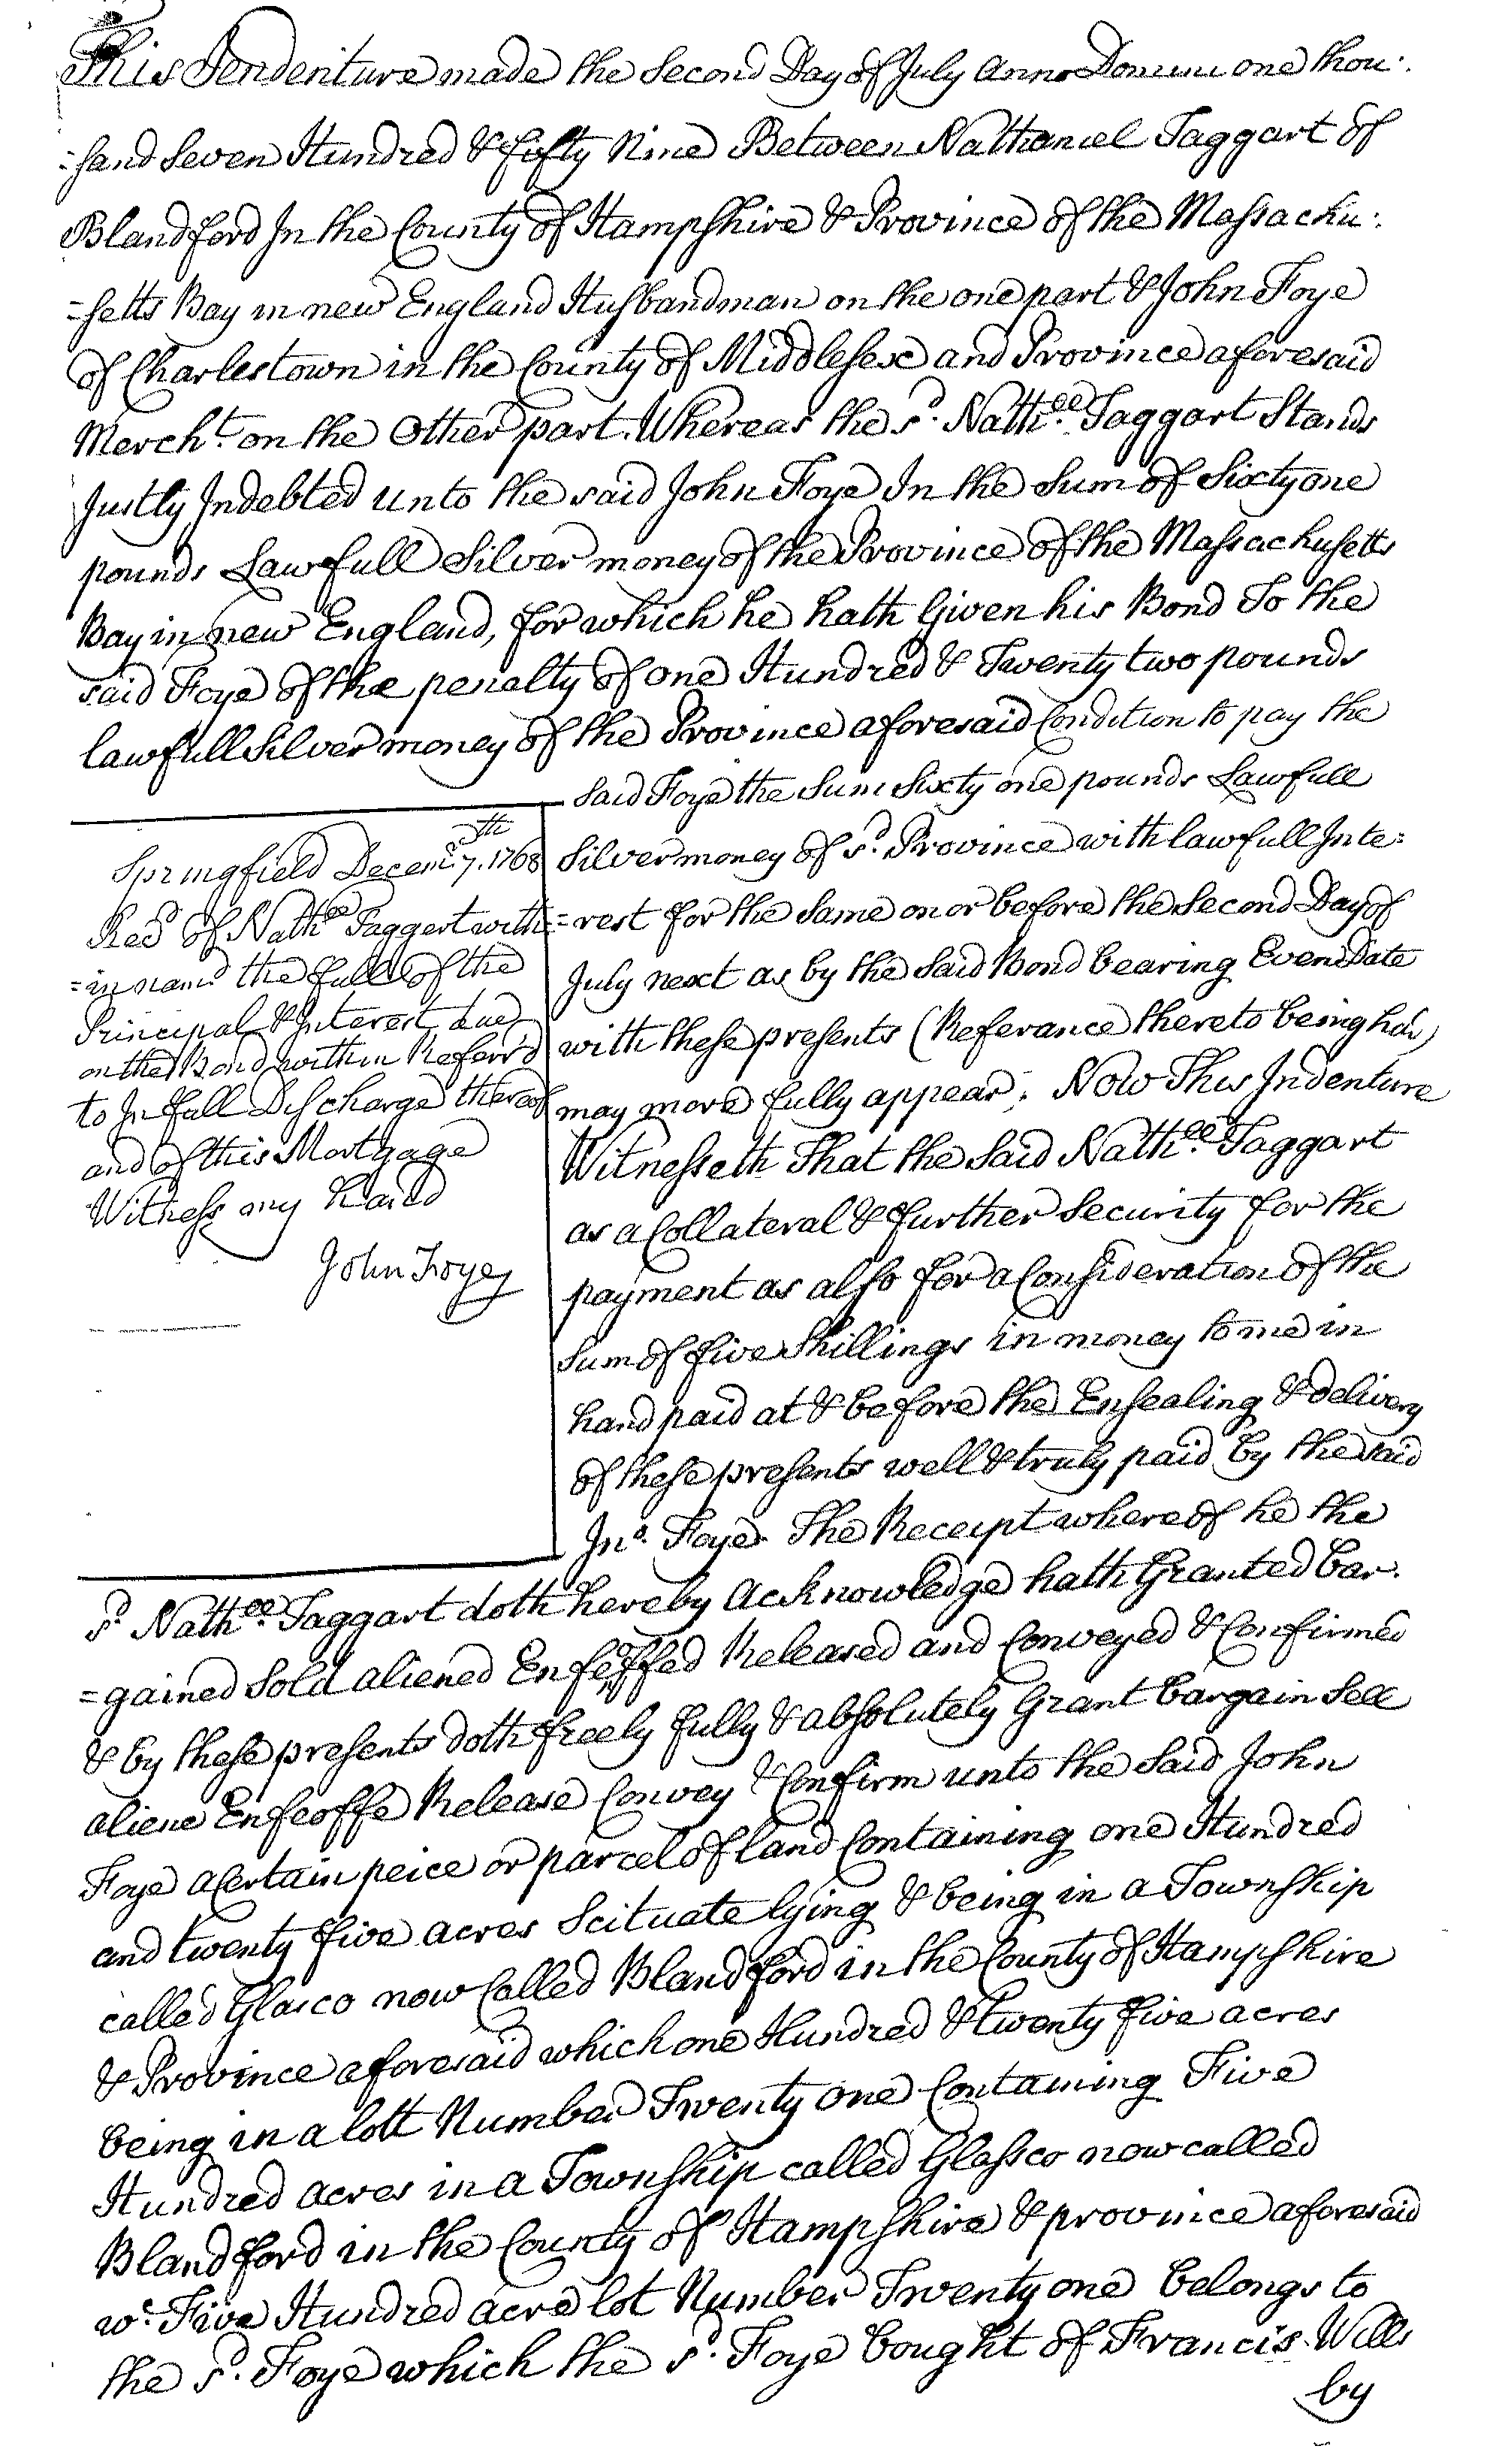 This Jendenture made the Second Day of July Anno Domini one thou:
=sand Seven Hundred & fifty Nine Between Nathaniel Taggart of
Blandford In the County of Hampshire & Province of the Massachu:
=setts Bay in new England Husbandman on the one part & John Foye
of Charlestown in the County of Middlesex and Province aforesaid
Merch.t on the Other part. Whereas the s.d Nath.ll Taggart Stands
Justly Indebted unto the said John Foye In the Sum of Sixty one
pounds Lawfull Silver money of the Province of the Massachusetts
Bay in new England, for which he hath Given his Bond To the
said Foye of the penalty of one Hundred & Twenty two pounds
lawfull Silver money of the Province aforesaid Condition to pay the
said Foye the Sum Sixty one pounds Lawfull
Silver money of s.d Province with lawfull Inte=
=rest for the Same on or before the Second Day of
July next as by the Said Bond bearing Even Date
with these presents (Referance thereto being had)
may more fully appear; Now This Indenture
Witnesseth That the Said Nath.ll Taggart
as a Collateral & further Security for the
payment as also for a Consideration of the
Sum of five Shillings in money to me in
hand paid at & before the Ensealing & delivery
of these presents well & truly paid by the said
Jn.o Foye The Receipt whereof he the
Springfield Decem.r 7.th 1768
Rec.d of Nath.ll Taggert with=
=in nam'd the full of the
Principal & Interest due
on the Bond within Referr'd
to In full Discharge thereof
and of this Mortgage
Witness my hand
John Foye
s.d Nath.ll Taggart doth hereby Acknowledge hath Granted bar.
=gained Sold aliened Enfeoffed Released and Conveyed & Confirmed
& by these presents doth freely fully & absolutely Grant bargain Sell
aliene Enfeoffe Release Convey & Confirm unto the Said John
Foye a Certain peice or parcel of land Containing one Hundred
and twenty five acres Scituate lying & being in a Township
called Glasco now Called Blandford in the County of Hampshire
& Province aforesaid which one Hundred & twenty five acres
being in a lott Number Twenty one Containing Five
Hundred acres in a Township called Glassco now called
Blandford in the County of Hampshire & province aforesaid
w.c Five Hundred acre lot Number Twenty one belongs to
the s.d Foye which the s.d Foye bought of Francis Wells
by